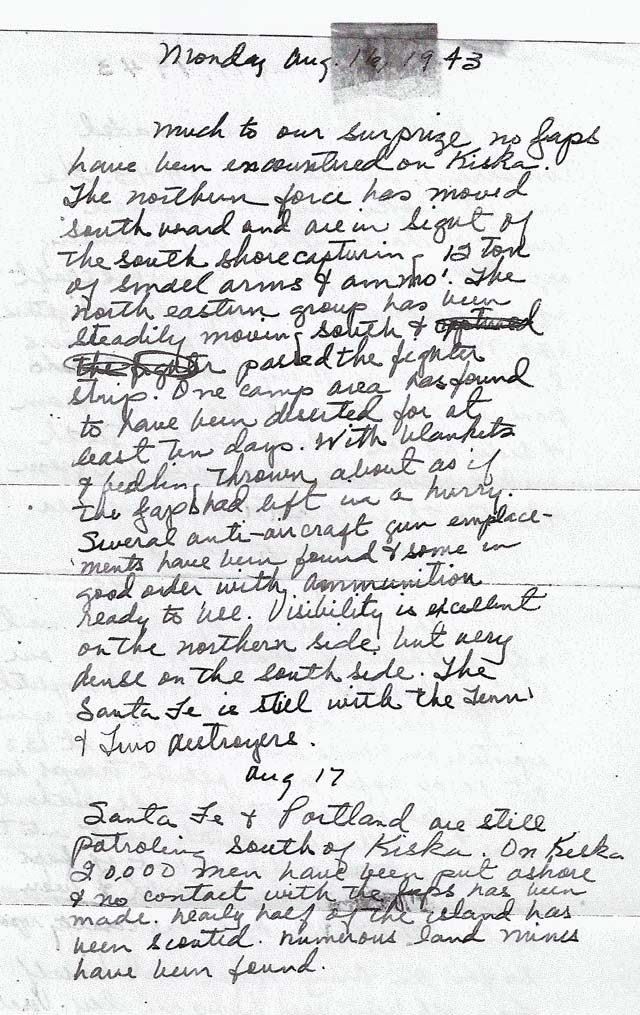 Monday Aug. 16, 1943
Much to our surprize no Japs
have been encountured on Kiska.
The northern force has moved
southward and are in sight of
the south shore capturing 12 ton
of small arms & ammo'. The
north eastern group has been
steadily moving south & captured
the fighter passed the fighter
strip. One camp area has found
to have been diserted for at
least ten days. With blankets
& bedding thrown about as if
the Japs had left in a hurry.
Several anti-aircraft gun emplace-
ments have been found & some in
good order with ammunition
ready to use. Visibility is excellent
on the northern side, but very
dense on the south side. The
Santa Fe is still with the Tenn'
& Two destroyers.
Aug 17
Santa Fe & Portland are still
patroling south of Kiska. On Kiska
20,000 men have been put ashore
& no contact with the Japs has been
made. nearly half of the island has
been scouted. numerous land mines
have been found.